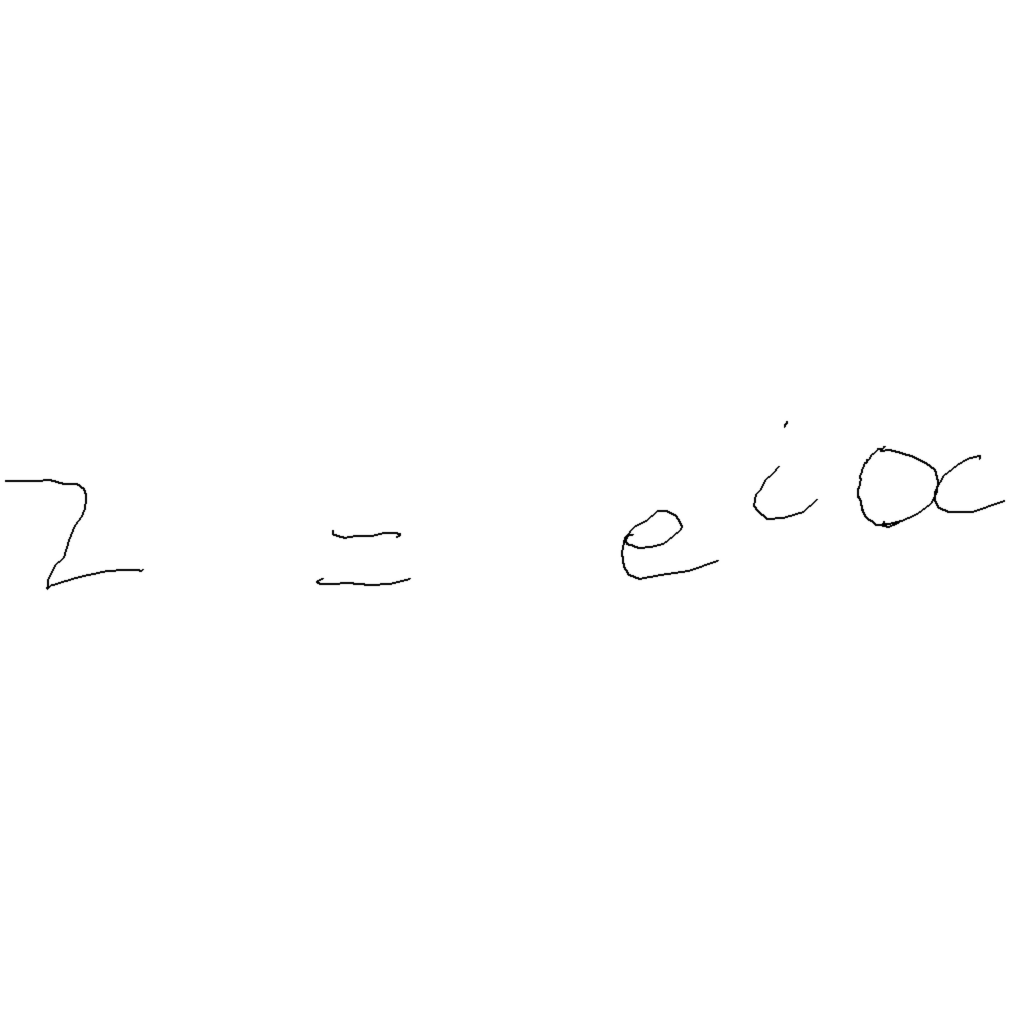 z = e^{iα}